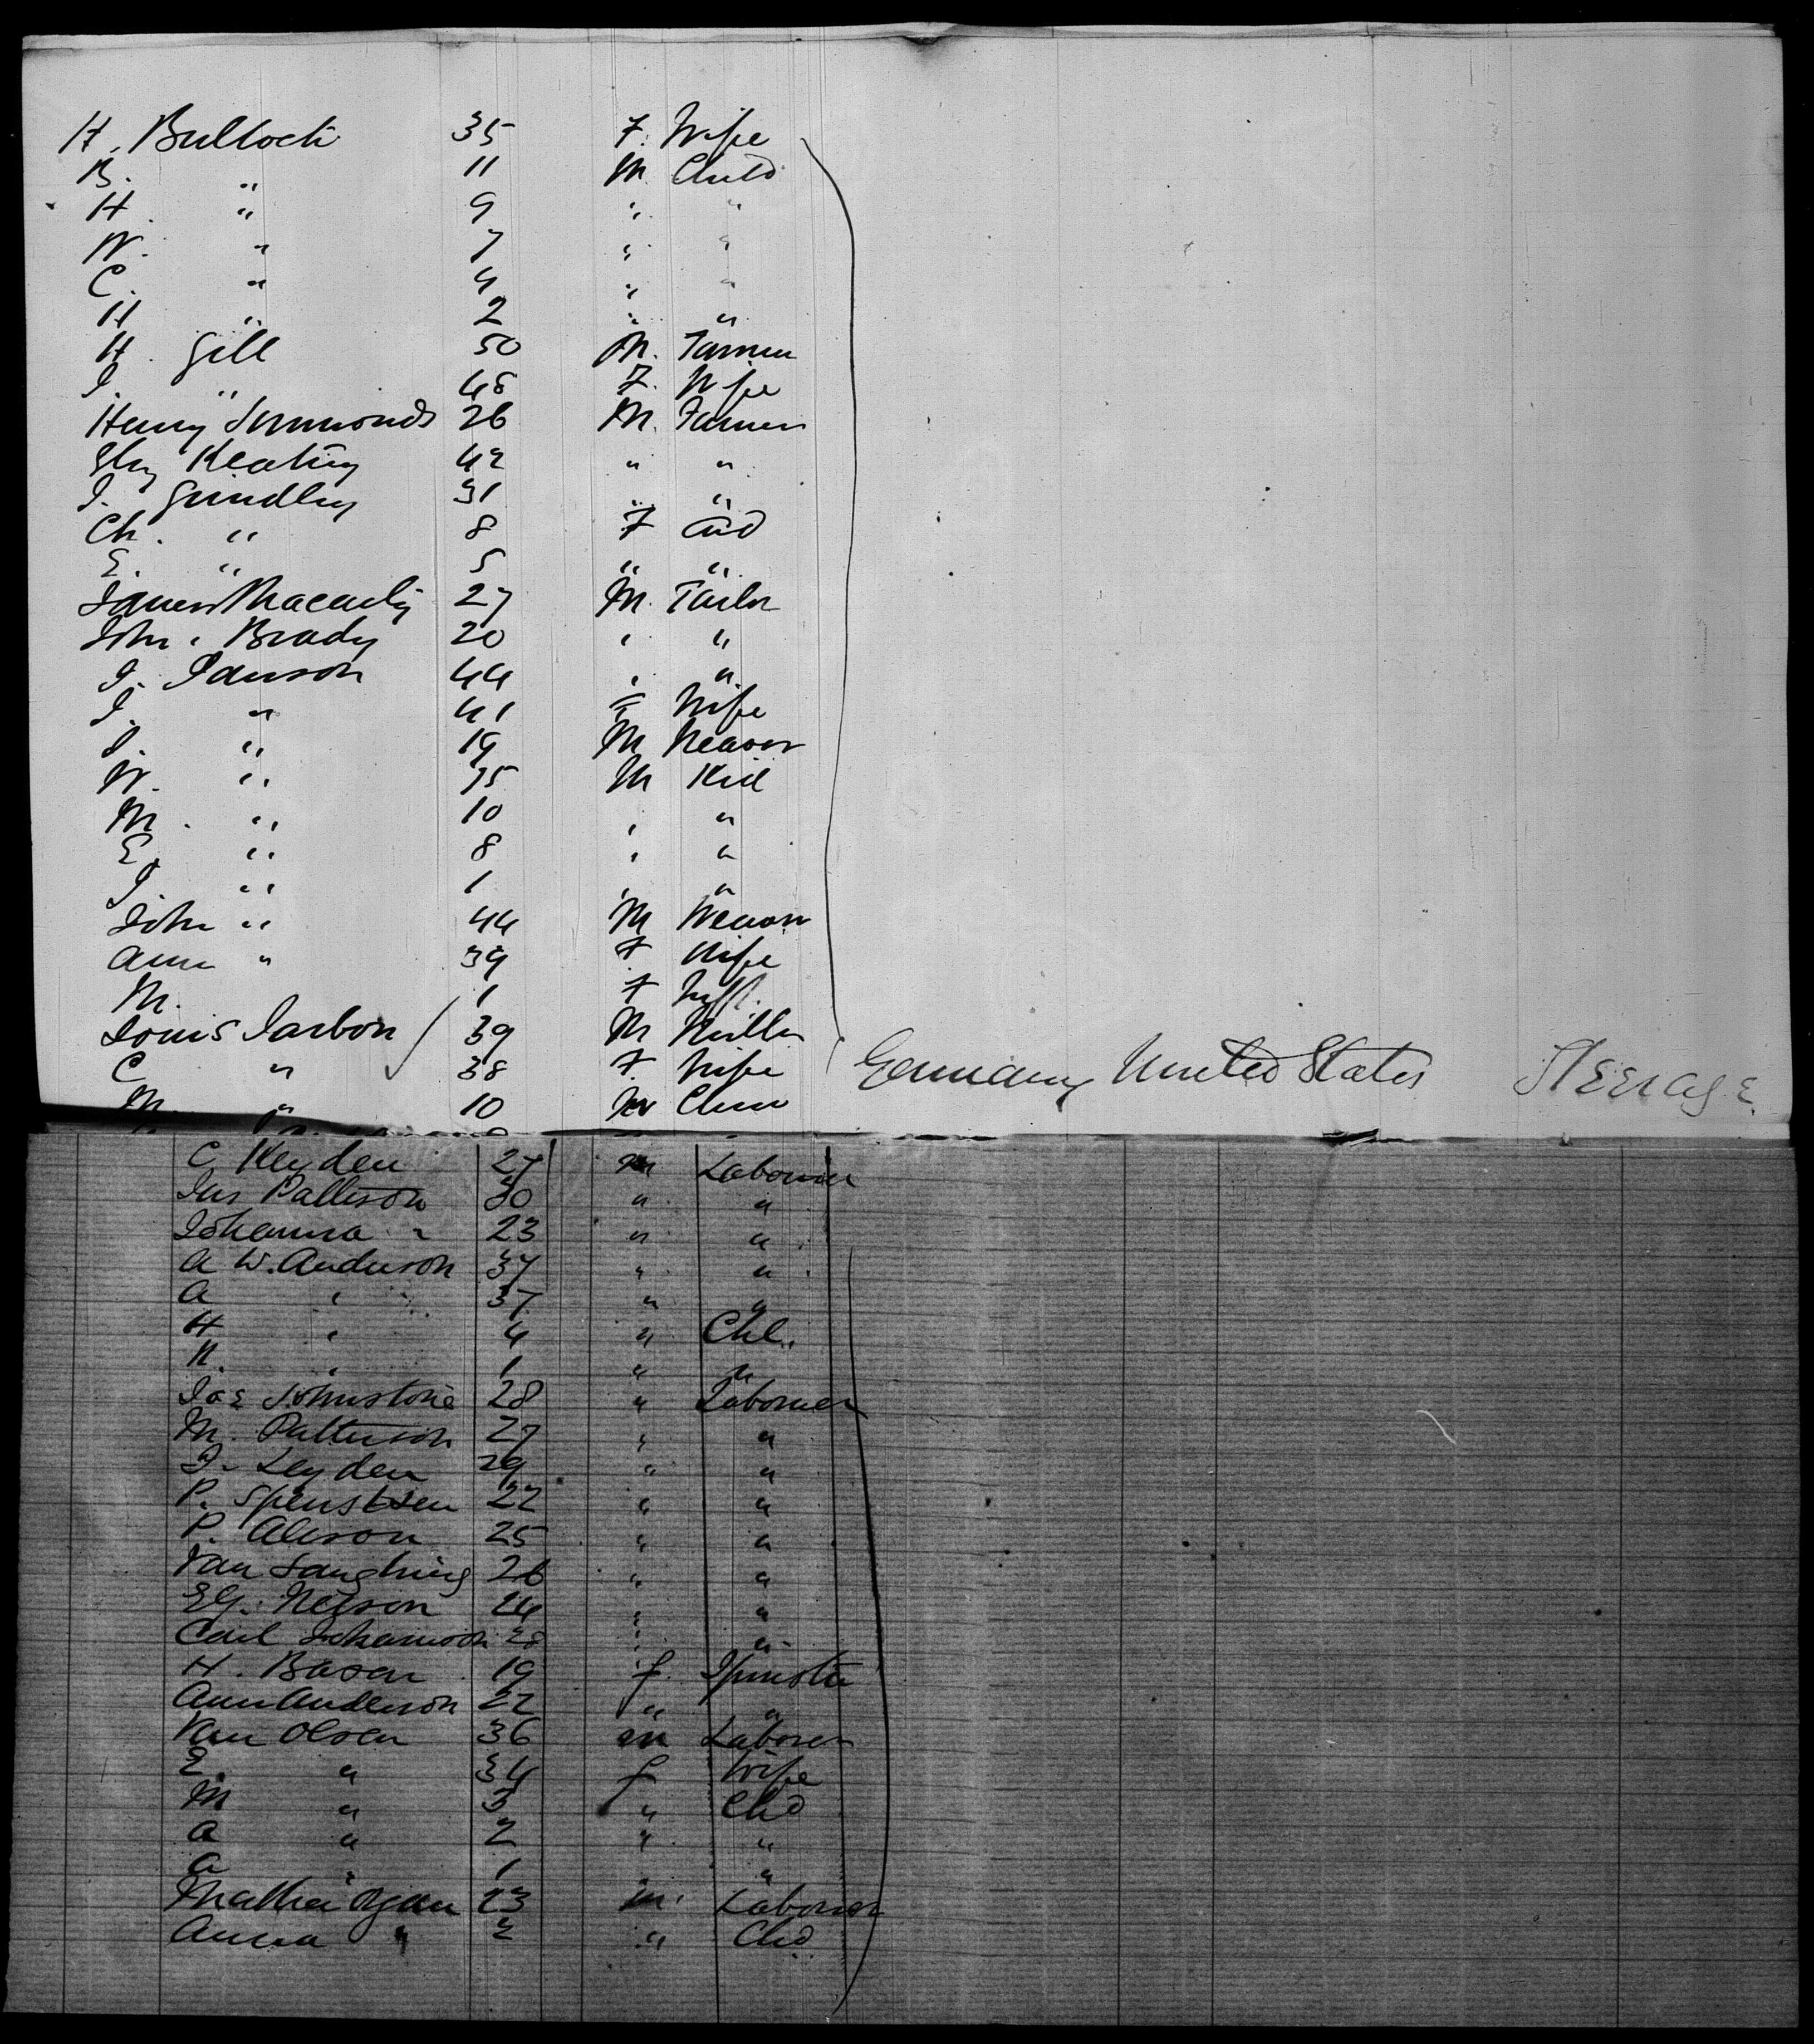 H. Bullock 35 F. Wife
B. " 11 M. Child
H. " 9 " "
W. " 7 " "
C. " 4 " "
H " 2 " "
H. Gill 50 M. Farmer
I. " 48 F. Wife
Henry Simmonds 26 M. Farmer
Hy Keating 42 " "
I. Grindley 31 " "
Ch. " 8 F
E. " 5 " "
James Macauly 27 M. Tailor
John Brady 20 " "
I. Ianson 44 " "
I. " 41 F Wife
I. " 19 M Weaver
W. " 15 M
M. " 10 " "
E. " 8 " "
I. " 1 " "
John " 44 M Weaver
Ann " 39 F Wife
M. 1 F Inft.
Louis Jarbon 39 M Miller
C " 38 F. Wife Germany United States Steerage
M. " 10 M
C. Keyden 27 m Labourer
Jas Patterson 30 " "
Johanna " 23 " "
A W. Anderson 37 " "
A " 37 " "
H " 4 " Chl.
N. " 1 " "
Jas Johnstone 28 " Labourer
M. Patterson 27 " "
I. Leyden 29 " "
P. 22 " "
P. Alison 25 " "
Van 26 " "
Nelson 24 " "
Carl Johanson 28 " "
H. Bason 19 f. Spinster
Ann Anderson 22 " "
Van Olsen 36 m Laborer
E. " 34 f Wife
M " 3 " Chd
A " 2 " "
A " 1 "
Mathew Ryan 23 m. Laborer
Anna " 2 " Chd